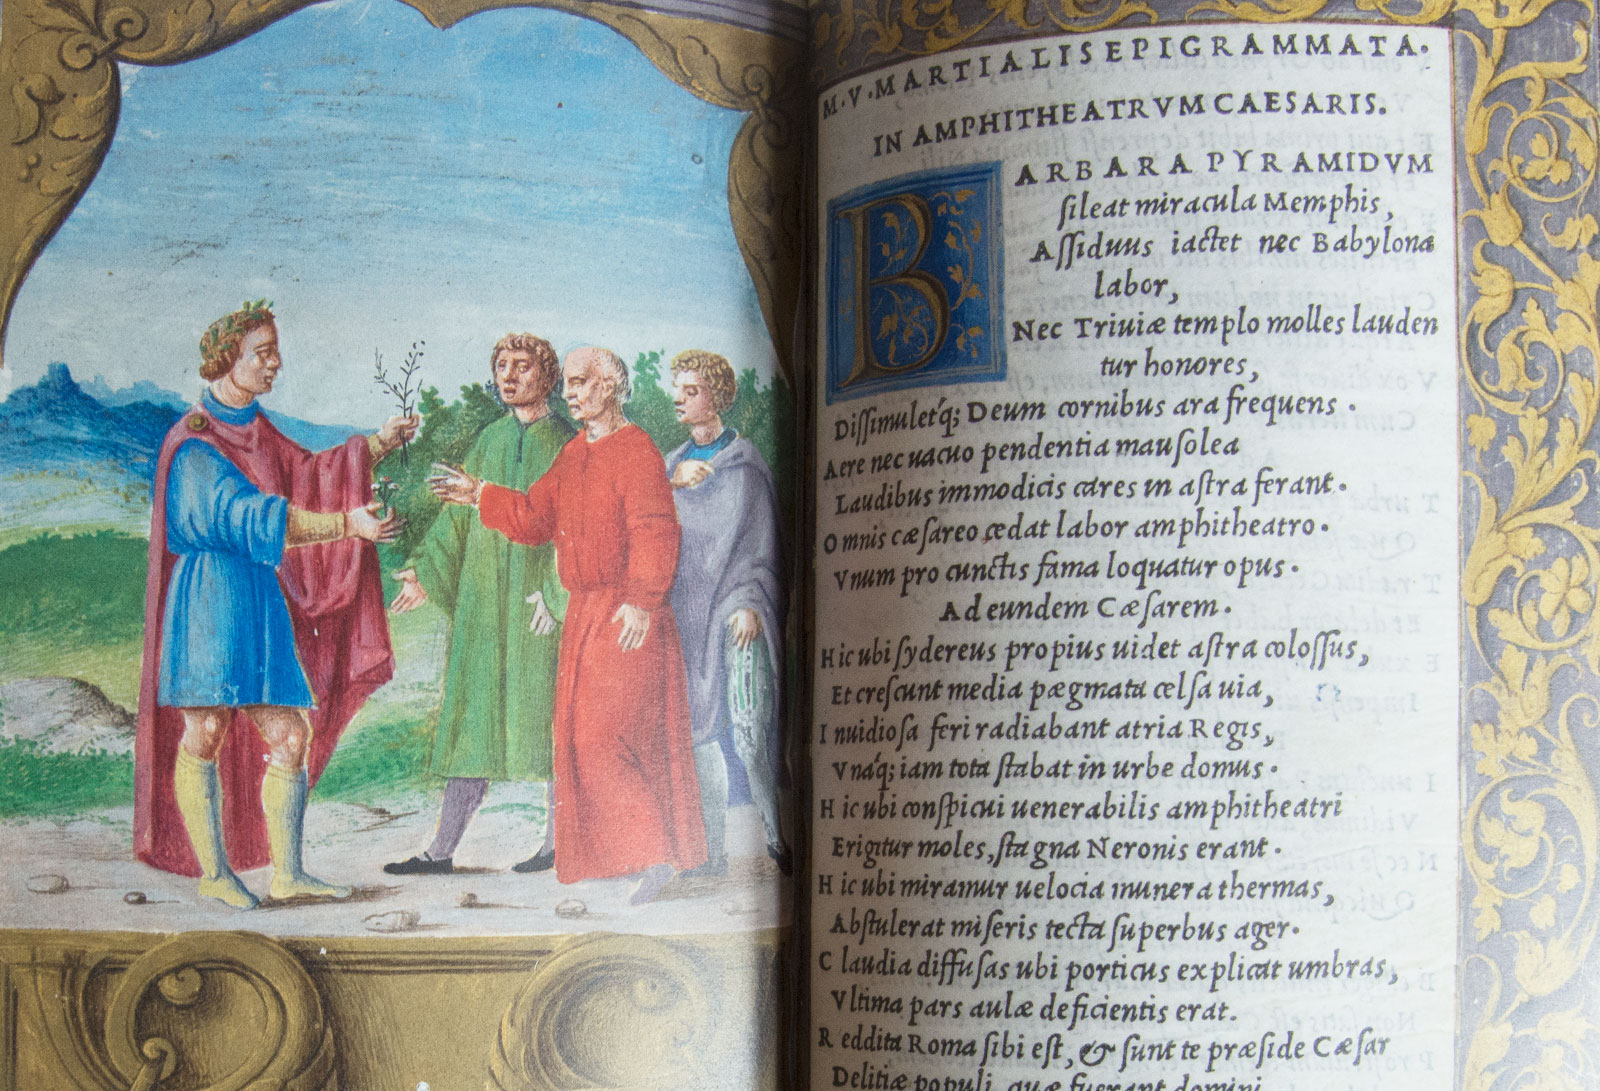 M. V. MARTIALIS EPIGRAMMATA.
IN AMPHITHEATRVM CAESARIS.
BARBARA PYRAMIDVM
ſileat miracula Memphis,
Aſſiduus iactet nec Babylona
labor,
Nec Triuiæ templo molles lauden
tur honores,
Diſſimulet'q; Deum cornibus ara frequens .
Aere nec uacuo pendentia mauſolea
Laudibus immodicis cares in aſtra ferant.
Omnis cæſareo cedat labor amphitheatro.
Vnum pro cunctis fama loquatur opus.
Ad eundem Cæſarem.
Hic ubi ſydereus propius uidet aſtra coloſſus,
Et creſcunt media pægmata celſa uia,
Inuidioſa feri radiabant atria Regis,
Vna'q; iam tota ſtabat in urbe domus.
Hic ubi conſpicui uenerabilis amphitheatri
Erigitur moles, ſtagna Neronis erant.
Hic ubi miramur uelocia munera thermas,
Abſtulerat miſeris tecta ſuperbus ager.
Claudia diffuſas ubi porticus explicat umbras,
Vltima pars aulæ deficientis erat.
Reddita Roma ſibi eſt, & ſunt te præſide Cæſar
Delitiæ populi, quæ fuerant domini.